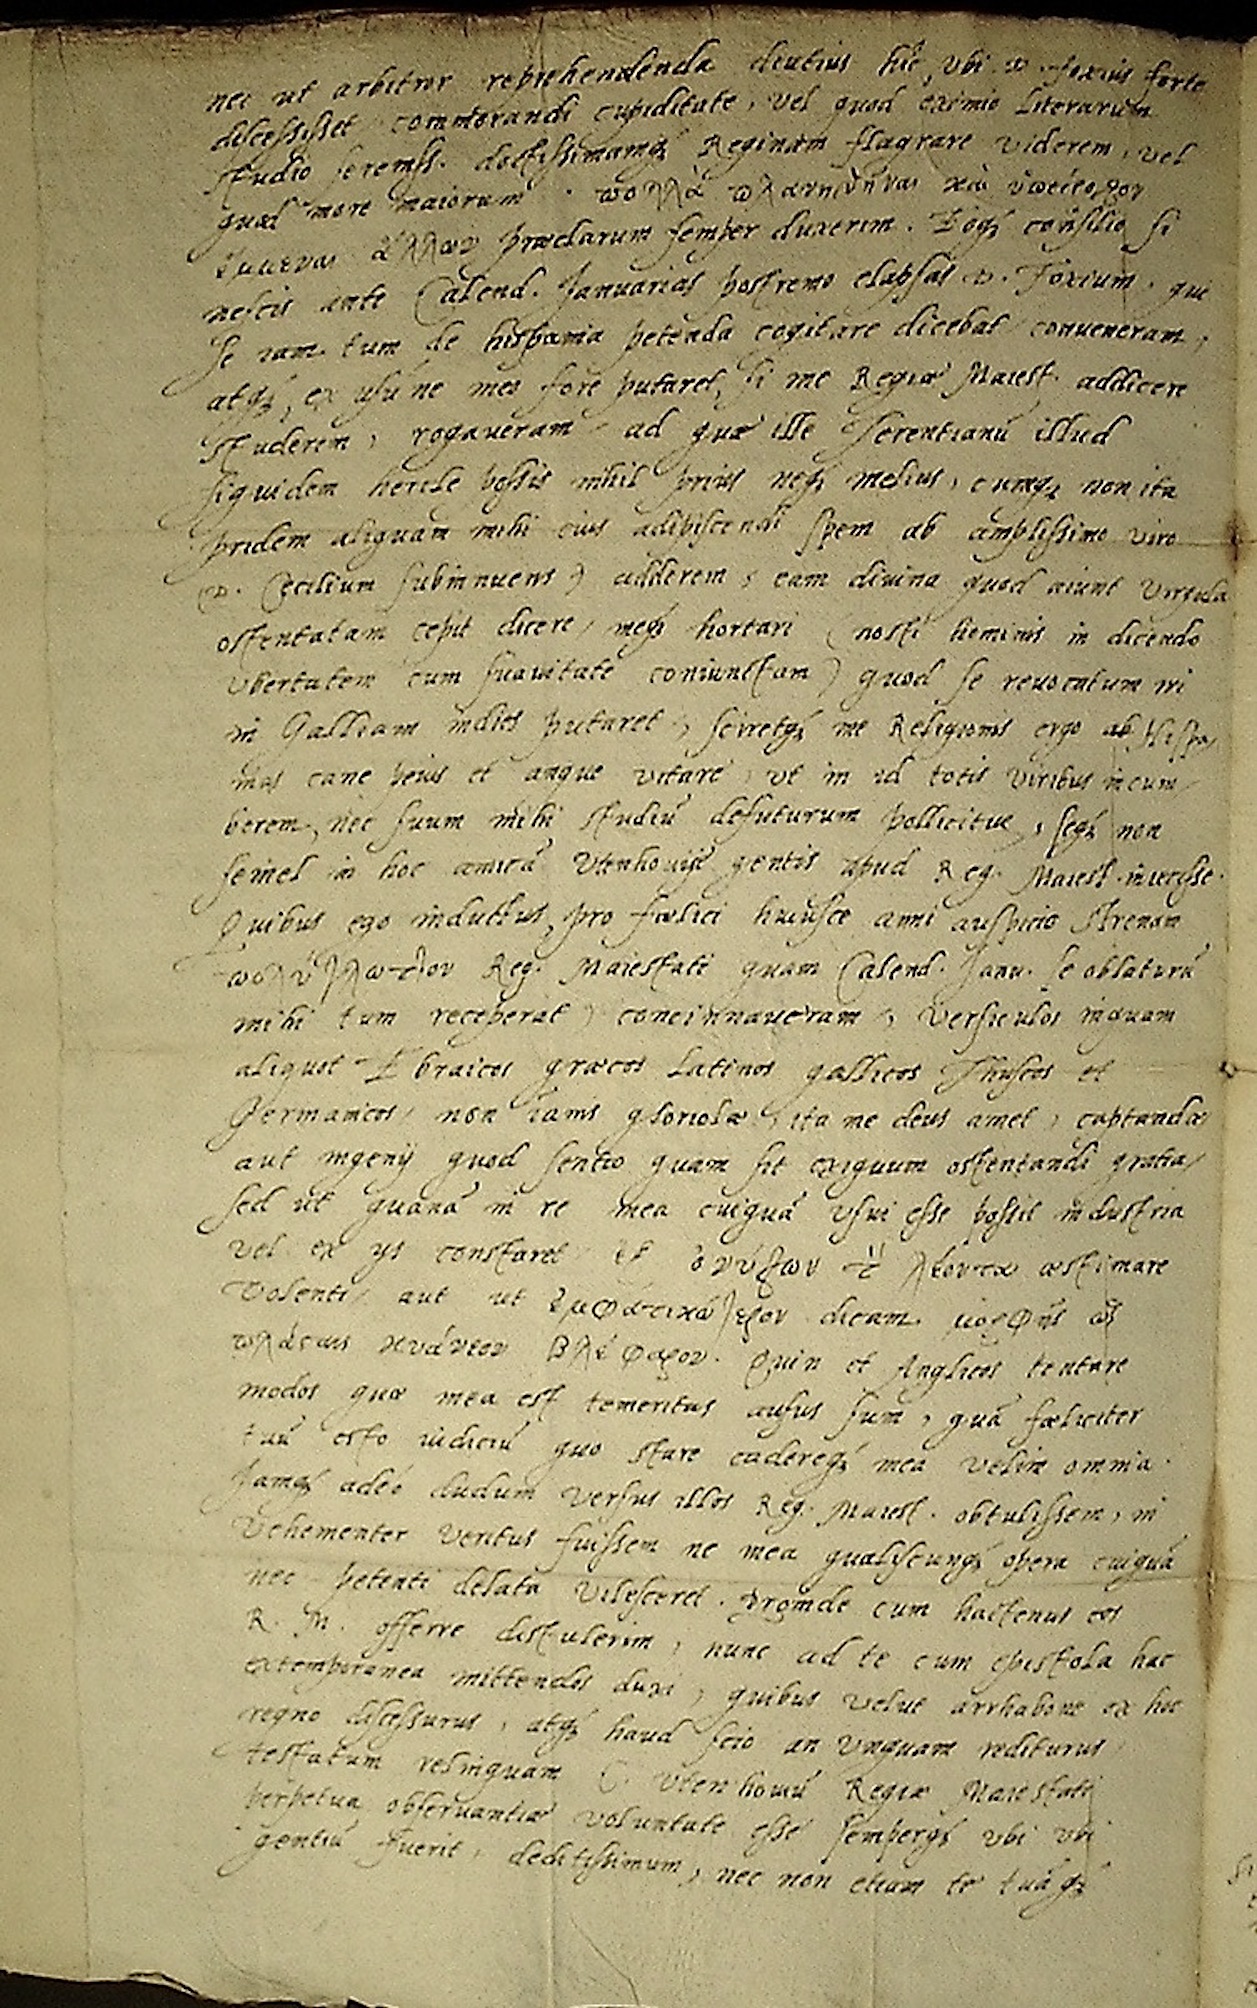 nec ut arbitror reprehendenda diutius hîc, vbi D. Foxius forte
discessisset commorandi cupiditate, vel quod eximio literarum
studio sereniss. doctissimamq; Reginam flagrare viderem, vel
quod more maiorum πολλὰ πλανηθῆναι καὶ
ἔμμεναι ἄλλων præclarum semper duxerim. Eoq; consilio si
nescis ante Calend. Januarias postremo elapsas D. Foxium, qui
se iam tum de hispania petenda cogitare dicebat conveneram,
atq; ex usu ne meo fore putaret, si me Regiæ Maiest. addicere
studerem, rogaveram ad quæ ille Terentianū illud
siquidem hercle possis nihil prius neq; melius, cumq; non ita
pridem aliquam mihi eius adipiscendi spem ab amplissimo viro
D. Cecilium subinnuens) adderem, eam divina quod aiunt virgula
ostentatam cepit dicere, meq; hortari (nosti hominis in dicendo
vbertatem cum suavitate coniunctam) quod se revocatum iri
in Galliam indies putaret, sciretq; me Religionis ergo ab Hispa,
nias cane peius et angue vitare, vt in id totis viribus incum,
berem, nec suum mihi studiū defuturum pollicitus, seq; non
semel in hoc Vtenhovij gentis apud Reg. Maiest. iniecisse.
Quibus ego inductus, pro fœlici huiusce anni auspicio strenam
πολύγλωττον Reg. Maiestati quam Calend. Janu. se oblaturū
mihi tum receperat) concinnaveram, versiculos inquam
aliquot Ebraicos græcos Latinos gallicos Thuscos et
Germanicos, non inanis gloriolæ, ita me deus amet, captandæ
aut ingenij quod sentio quam sit exiguum ostentandi gratia,
sed ut quanā in re mea cuiquā vsui esse possit industria
vel ex ijs constaret ἐξ ὀνύχων τὸν λέοντα æstimare
volenti, aut ut ἐμφατικώτερον dicam μορφῆς
κυάνεον βλέφαρον. Quin et Anglicos tentare
modos quæ mea est temeritas ausus sum, quā fœliciter
tuū esto iudiciū quo stare cadereq; mea velim omnia.
Jamq; adeò dudum versus illos Reg. Maiest. obtulissem, ni
vehementer veritus fuissem ne mea qualiscunq; opera cuiquā
nec petenti delata vilesceret. Proinde cum hactenus eos
R. M. offerre distulerim, nunc ad te cum epistola hac
extemporanea mittendos duxi, quibus velut arrhabone ex hoc
regno discessurus, atq; haud scio an vnquam rediturus,
testatum relinquam C. Vtenhouiū Regiæ Maiestati
perpetua obseruantiæ voluntate esse semperq; vbi vbi
gentiū fuerit, deditissimum, nec non etiam te tuāq;